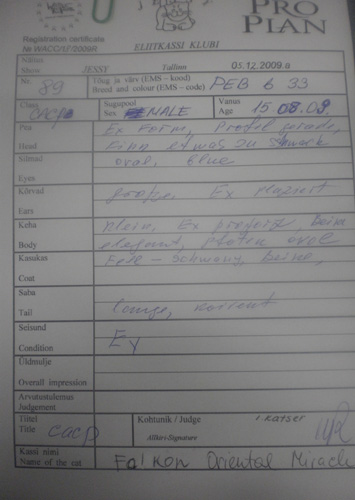 PRO
PLAN
Registration certificate
№ WACC/LI/2009R
ELIITKASSI KLUBI
Näitus
Show JESSY Tallinn 05.12.2009.a
Nr. 89 Tõug ja värv (EMS – kood)
Breed and colour (EMS – code) PEB 6 33
Class CACP Sugupool
Sex MALE Vanus
Age 15.08.09.
Pea Ex Form, Profil gerade,
Head Kinn etwas zu schwach
Silmad oval, blue
Eyes
Kõrvad grosse, Ex plaziert
Ears
Keha klein, Ex Beine
Body elegant, Pfoten oval
Kasukas Fell – Schwanz, Beine,
Coat
Saba
Tail lange, korrekt
Seisund
Condition Ex
Üldmulje
Overall impression
Arvutustulemus
Judgement
Tiitel
Title CACP Kohtunik / Judge
Allkiri-Signature
Kassi nimi
Name of the cat Falkon Oriental Miracle